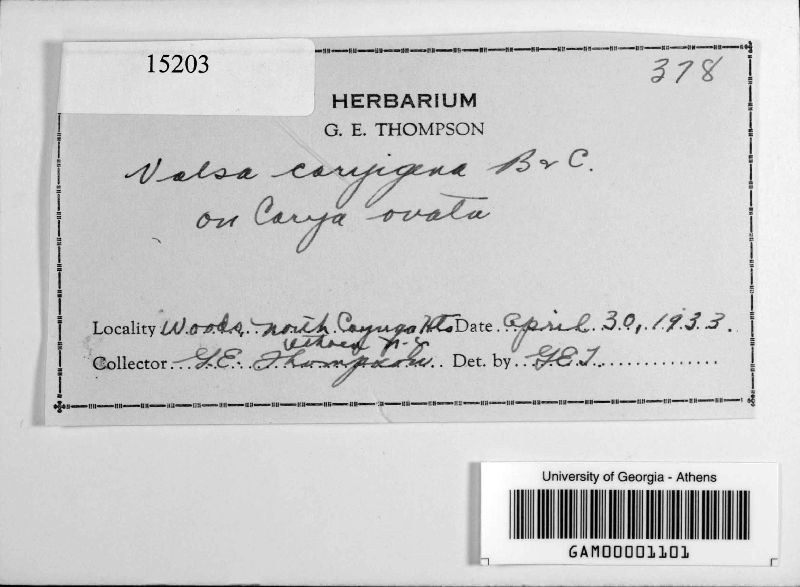 15203
378
HERBARIUM
G. E. THOMPSON
Valsa caryigena B & C.
on Carya ovata
Locality Woods, north Cayuga Hts Date April 30, 1933.
Ithaca N.Y.
Collector G.E. Thompson Det. by G.E.T.
University of Georgia - Athens
GAM00001101